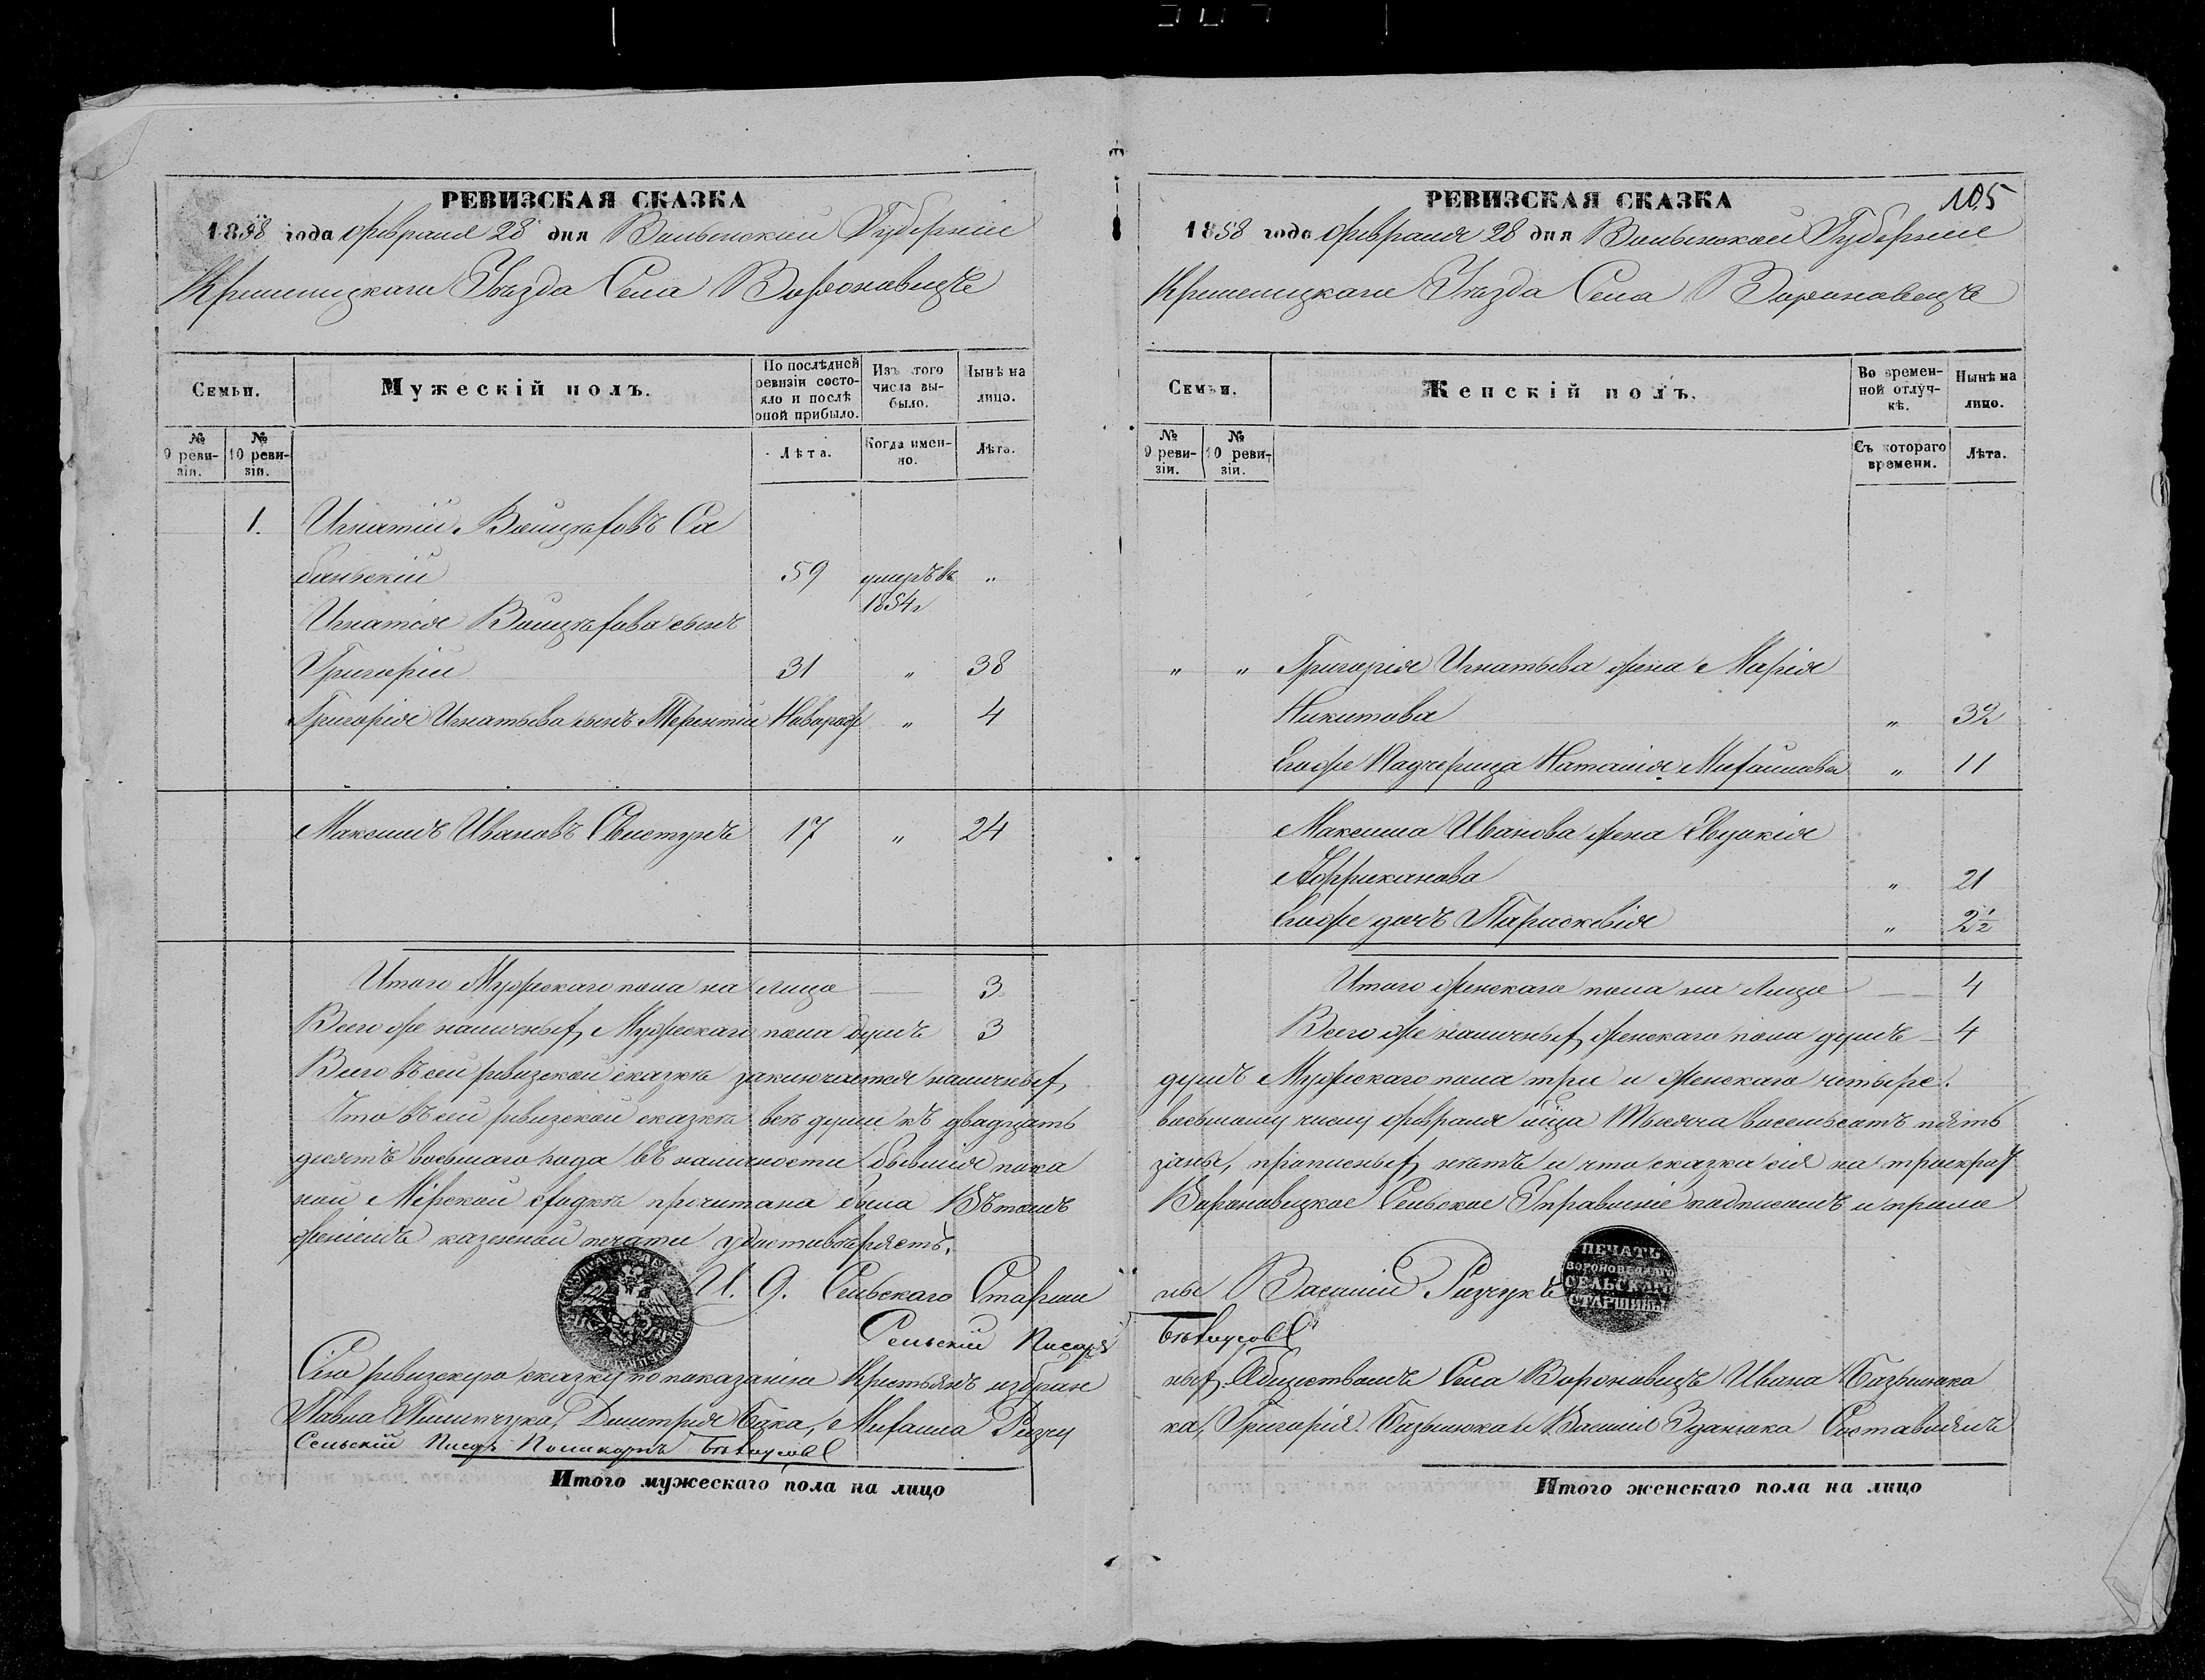 РЕВИЗСКАЯ СКАЗКА
1858 года февраля 28 дня Волынской Губерніи
Кременецкаго Уѣзда Села Вороновецъ
Семьи.
Мужескій полъ.
По послѣдней ревизіи состояло и послѣ оной прибыло.
Изъ того числа выбыло.
Нынѣ на лицо.
№ 9 ревизіи.
№ 10 ревизіи.
Лѣта.
Когда именно.
Лѣта.
1. Игнатій Войцѣховъ Са
баньскій 59 умеръ въ „
1854 г
Игнатія Войцѣхова сынъ
Григорій 31 „ 38
Григорія Игнатьева сынъ Терентій Наворож „ 4
Максимъ Ивановъ Свистунъ 17 „ 24
Итого Мужескаго пола на лицо 3
Всего же наличныхъ Мужескаго пола душъ 3
Всего въ сей ревизской сказкѣ заключается наличныхъ
Что въ сей ревизской сказкѣ всѣ души къ двадцать
десятъ восьмаго года въ наличности бывшія пока
ной Мірской сходкѣ прочитана была Въ томъ
женіемъ казенной печати удостовѣряетъ.
И. Д. Сельскаго Старши
Сельскій Писарь
Сію ревизскую сказку по показанію Крестьянъ избран
Павла Пилипчука, Дмитрія Бака, Михаила Ризчу
Сельскій Писарь Поликарпъ Бѣлоусовъ
Итого мужескаго пола на лицо
РЕВИЗСКАЯ СКАЗКА
105
1858 года февраля 28 дня Волынской Губерніи
Кременецкаго Уѣзда Села Вороновецъ
Семьи.
Женскій полъ.
Во временной отлучкѣ.
Нынѣ на лицо.
№ 9 ревизіи.
№ 10 ревизіи.
Съ котораго времени.
Лѣта.
„ „ Григорія Игнатьева жена Марія
Никитова „ 32
Егоже Падчерица Наталія Михайлова „ 11
Максима Иванова жена Евдокія
Аффриканова „ 21
Егоже дочь Парасковія „ 2½
Итого женскаго пола на Лицо 4
Всего же наличныхъ женскаго пола душъ 4
душъ Мужескаго пола три и женскаго четыре.
восьмому числу февраля мѣсяца тысяча восемьсотъ пять
заны, прописныхъ нѣтъ и что сказка сія на троекрат
Вороновецкое Сельское Управленіе подписомъ и прило
ны Василій Ризчукъ
ПЕЧАТЬ
ВОРОНОВЕЦКАГО
СЕЛЬСКАГО
СТАРШИНЫ
Бѣлоусовъ
ныхъ Обществомъ Села Вороновецъ Ивана Базылюка
ка, Григорія Базылюка и Василія Зданюка Составлялъ
Итого женскаго пола на лицо